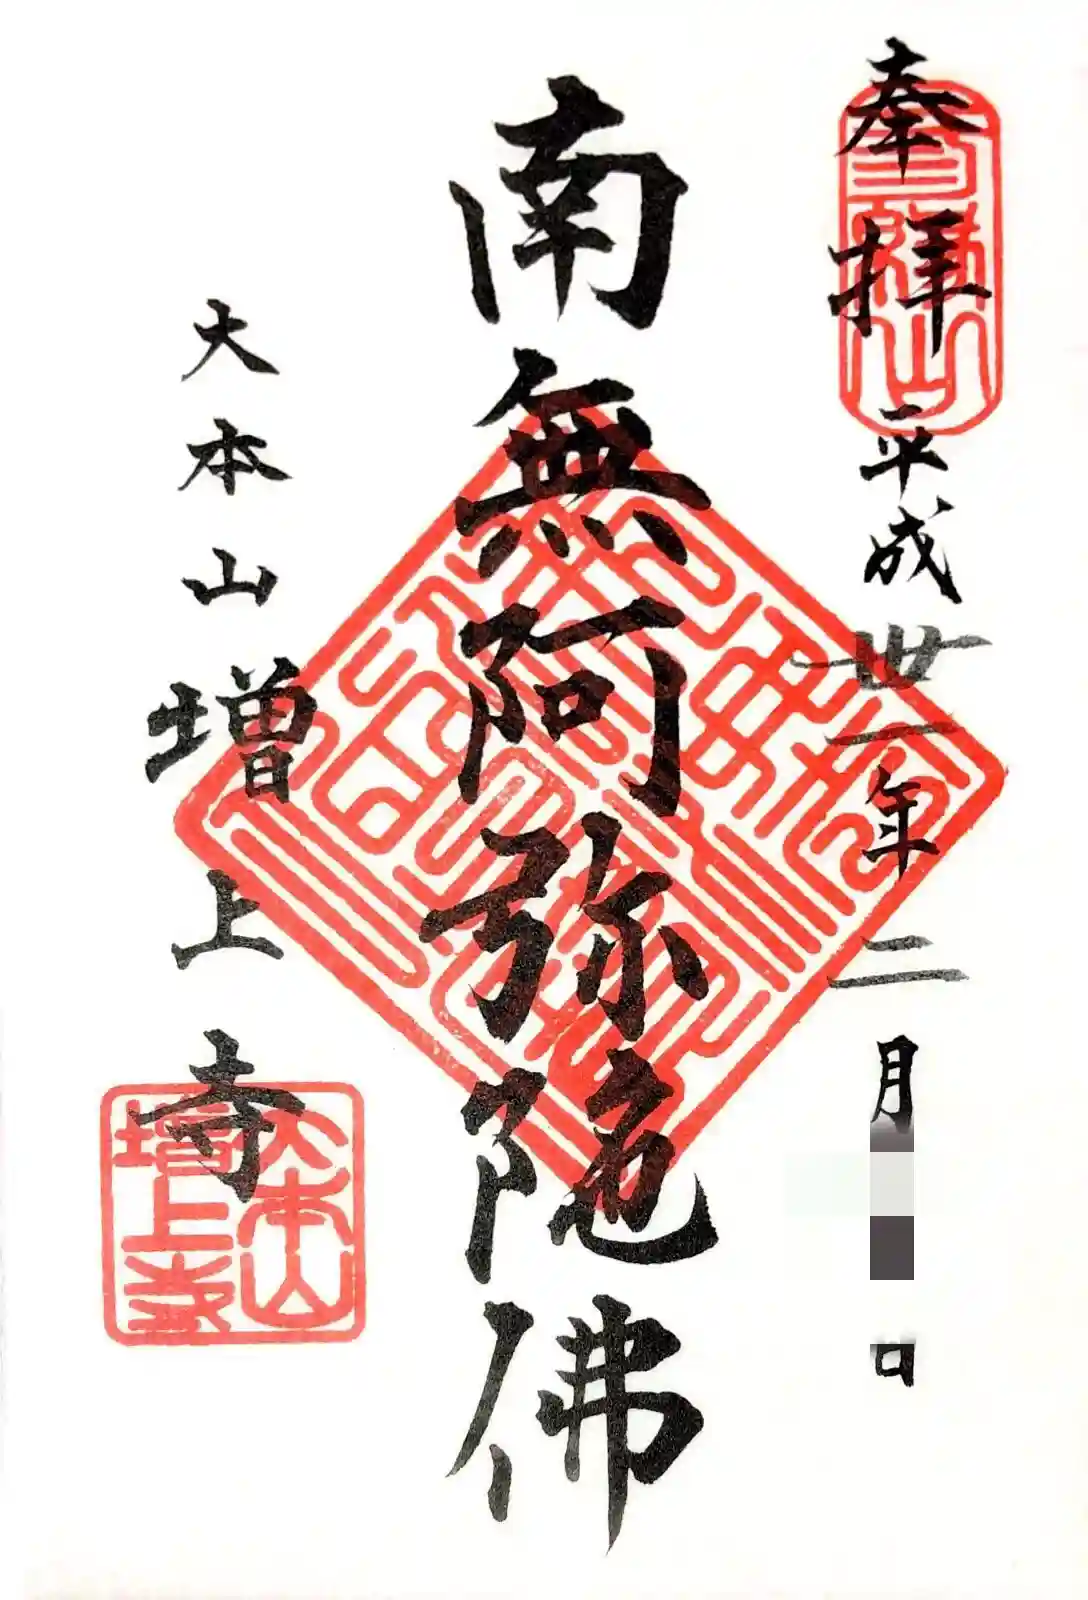 奉拝
平成卅一年二月日
南無阿弥陀佛
大本山増上寺
三縁山
大本山
増上寺